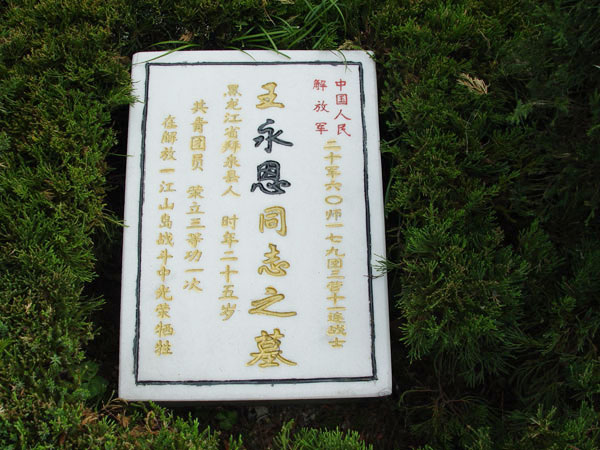 中国人民
解放军
二十军六〇师一七九团三营十一连战士
王永恩同志之墓
黑龙江省拜泉县人 时年二十五岁
共青团员 荣立三等功一次
在解放一江山岛战斗中光荣牺牲